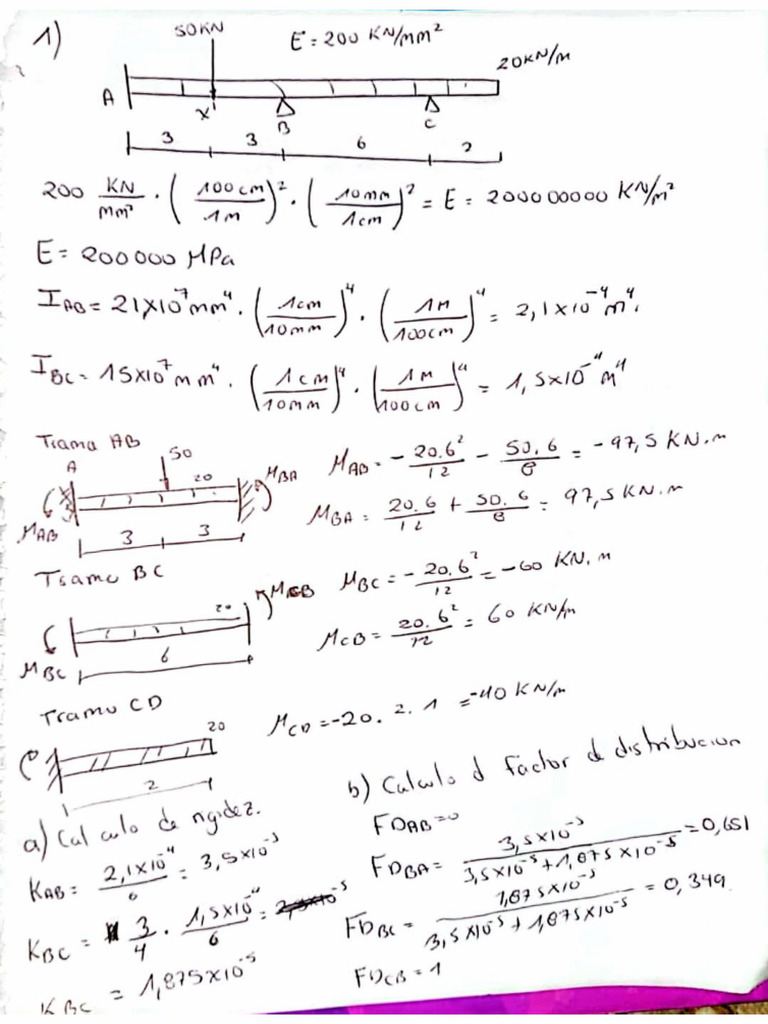 1)
50KN
E = 200 KN/mm²
20KN/m
A
x
B
C
3 3 6 2
200 KN/mm² · (100cm/1m)² · (10mm/1cm)² = E = 200000000 KN/m²
E = 200000 MPa
I_AB = 21x10⁷mm⁴ · (1cm/10mm)⁴ · (1M/100cm)⁴ = 2,1x10⁻⁴ m⁴.
I_BC = 15x10⁷mm⁴ · (1cm/10mm)⁴ · (1M/100cm)⁴ = 1,5x10⁻⁴ m⁴
Tramo AB
A 50 20
M_AB M_BA
3 3
M_AB = - 20.6²/12 - 50.6/8 = -97,5 KN.m
M_BA = 20.6/12 + 50.6/8 = 97,5 KN.m
Tramo BC
20 M_CB
M_BC
6
M_BC = - 20.6²/12 = -60 KN.m
M_CB = 20.6²/12 = 60 KN/m
Tramo CD
20
2
M_CD = -20. 2. 1 = -40 KN/m
a) Calculo de rigidez.
K_AB = 2,1x10⁻⁴/6 = 3,5x10⁻⁵
K_BC = 3/4 · 1,5x10⁻⁴/6 =
K_BC = 1,875x10⁻⁵
b) Calculo d factor d distribucion
FD_AB = 0
FD_BA = 3,5x10⁻⁵/3,5x10⁻⁵+1,875x10⁻⁵ = 0,651
FD_BC = 1,875x10⁻⁵/3,5x10⁻⁵+1,875x10⁻⁵ = 0,349
FD_CB = 1